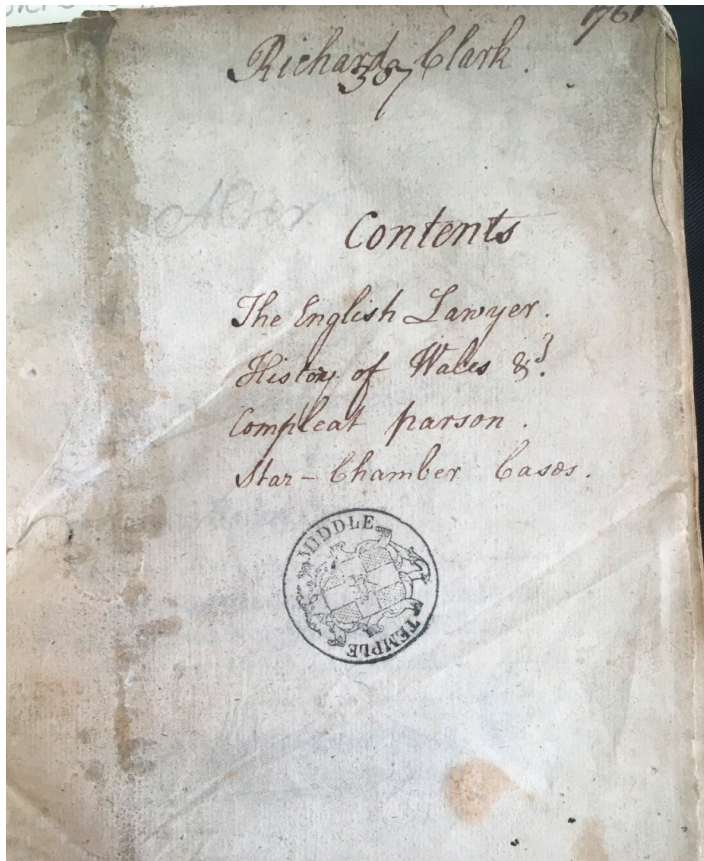 1761
Richard Clark.
387
Contents
The English Lawyer.
History of Wales &c.
Compleat parson.
Star-Chamber Cases.
MIDDLE
TEMPLE